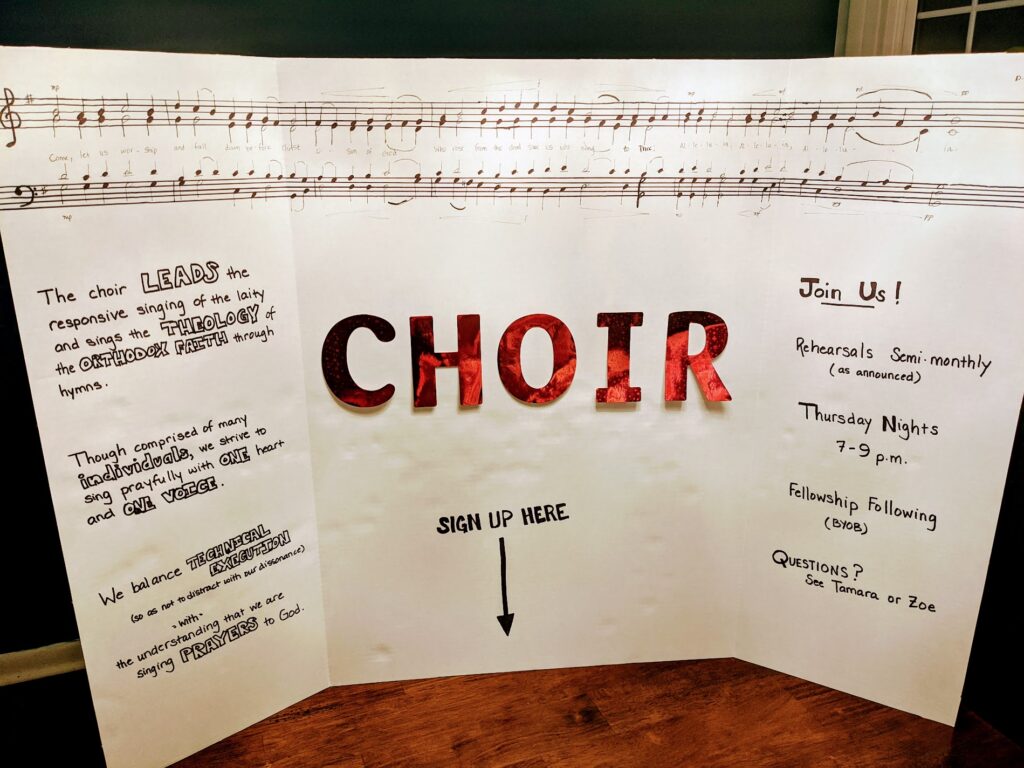 mp mp mf pp
Come, let us wor-ship and fall down be-fore Christ O Son of God Who rose from the dead save us who sing to Thee: Al-le-lu-ia, Al-le-lu-ia, Al-le-lu-ia.
mp mp mf pp
The choir LEADS the
responsive singing of the laity
and sings the THEOLOGY of
the ORTHODOX FAITH through
hymns.
Though comprised of many
individuals, we strive to
sing prayfully with ONE heart
and ONE VOICE.
We balance TECHNICAL
EXECUTION
(so as not to distract with our dissonance)
-with-
the understanding that we are
singing PRAYERS to God.
CHOIR
SIGN UP HERE
Join Us!
Rehearsals Semi-monthly
(as announced)
Thursday Nights
7-9 p.m.
Fellowship Following
(BYOB)
QUESTIONS?
See Tamara or Zoe